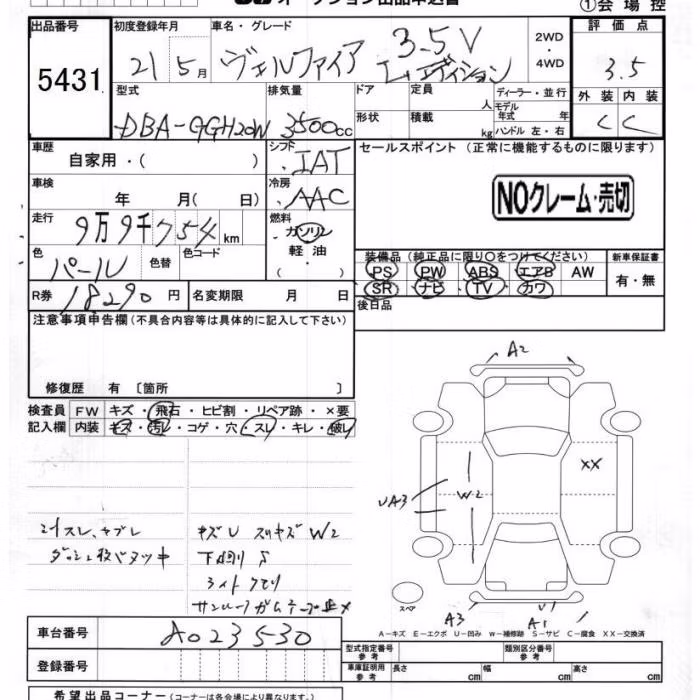 オークション出品申込書
①会場控
出品番号 初度登録年月 車名・グレード 2WD 評価点
5431 21 5月 ヴェルファイア 3.5V ・4WD 3.5
型式 排気量 ドア 定員 人 ディーラー・並行 外装 内装
DBA-GGH20W 3500cc 形状 積載 kg モデル年式 年 ハンドル 左・右 C C
車歴 シフト セールスポイント (正常に機能するものに限ります)
自家用・( ) IAT
車検 冷房 NOクレーム・売切
年 月( 日) AAC
走行 燃料
9万9千754km ガソリン
色 色替 色コード 軽油 装備品 (純正品に限り○をつけてください) 新車保証書
パール ( ) PS PW ABS エアB AW 有・無
R券 18290円 名変期限 月 日 SR ナビ TV カワ
注意事項申告欄 (不具合内容等は具体的に記入して下さい) 後日品
修復歴 有 〔箇所 〕
検査員 FW キズ・飛石・ヒビ割・リペア跡・×要
記入欄 内装 キズ・汚レ・コゲ・穴・スレ・キレ・破レ
A2
XX
UA3 W2
スレ、ヤブレ キズU スリキズ W2
下回り S
ライトクモリ
スペア
A3 U1 A1
車台番号 A0235530
A-キズ E-エクボ U-凹み W-補修跡 S-サビ C-腐食 XX-交換済
登録番号
型式指定番号 参考 類別区分番号 参考
車庫証明用 参考 長さ cm 幅 cm 高さ cm
希望出品コーナー (コーナーは各会場により異なります。)